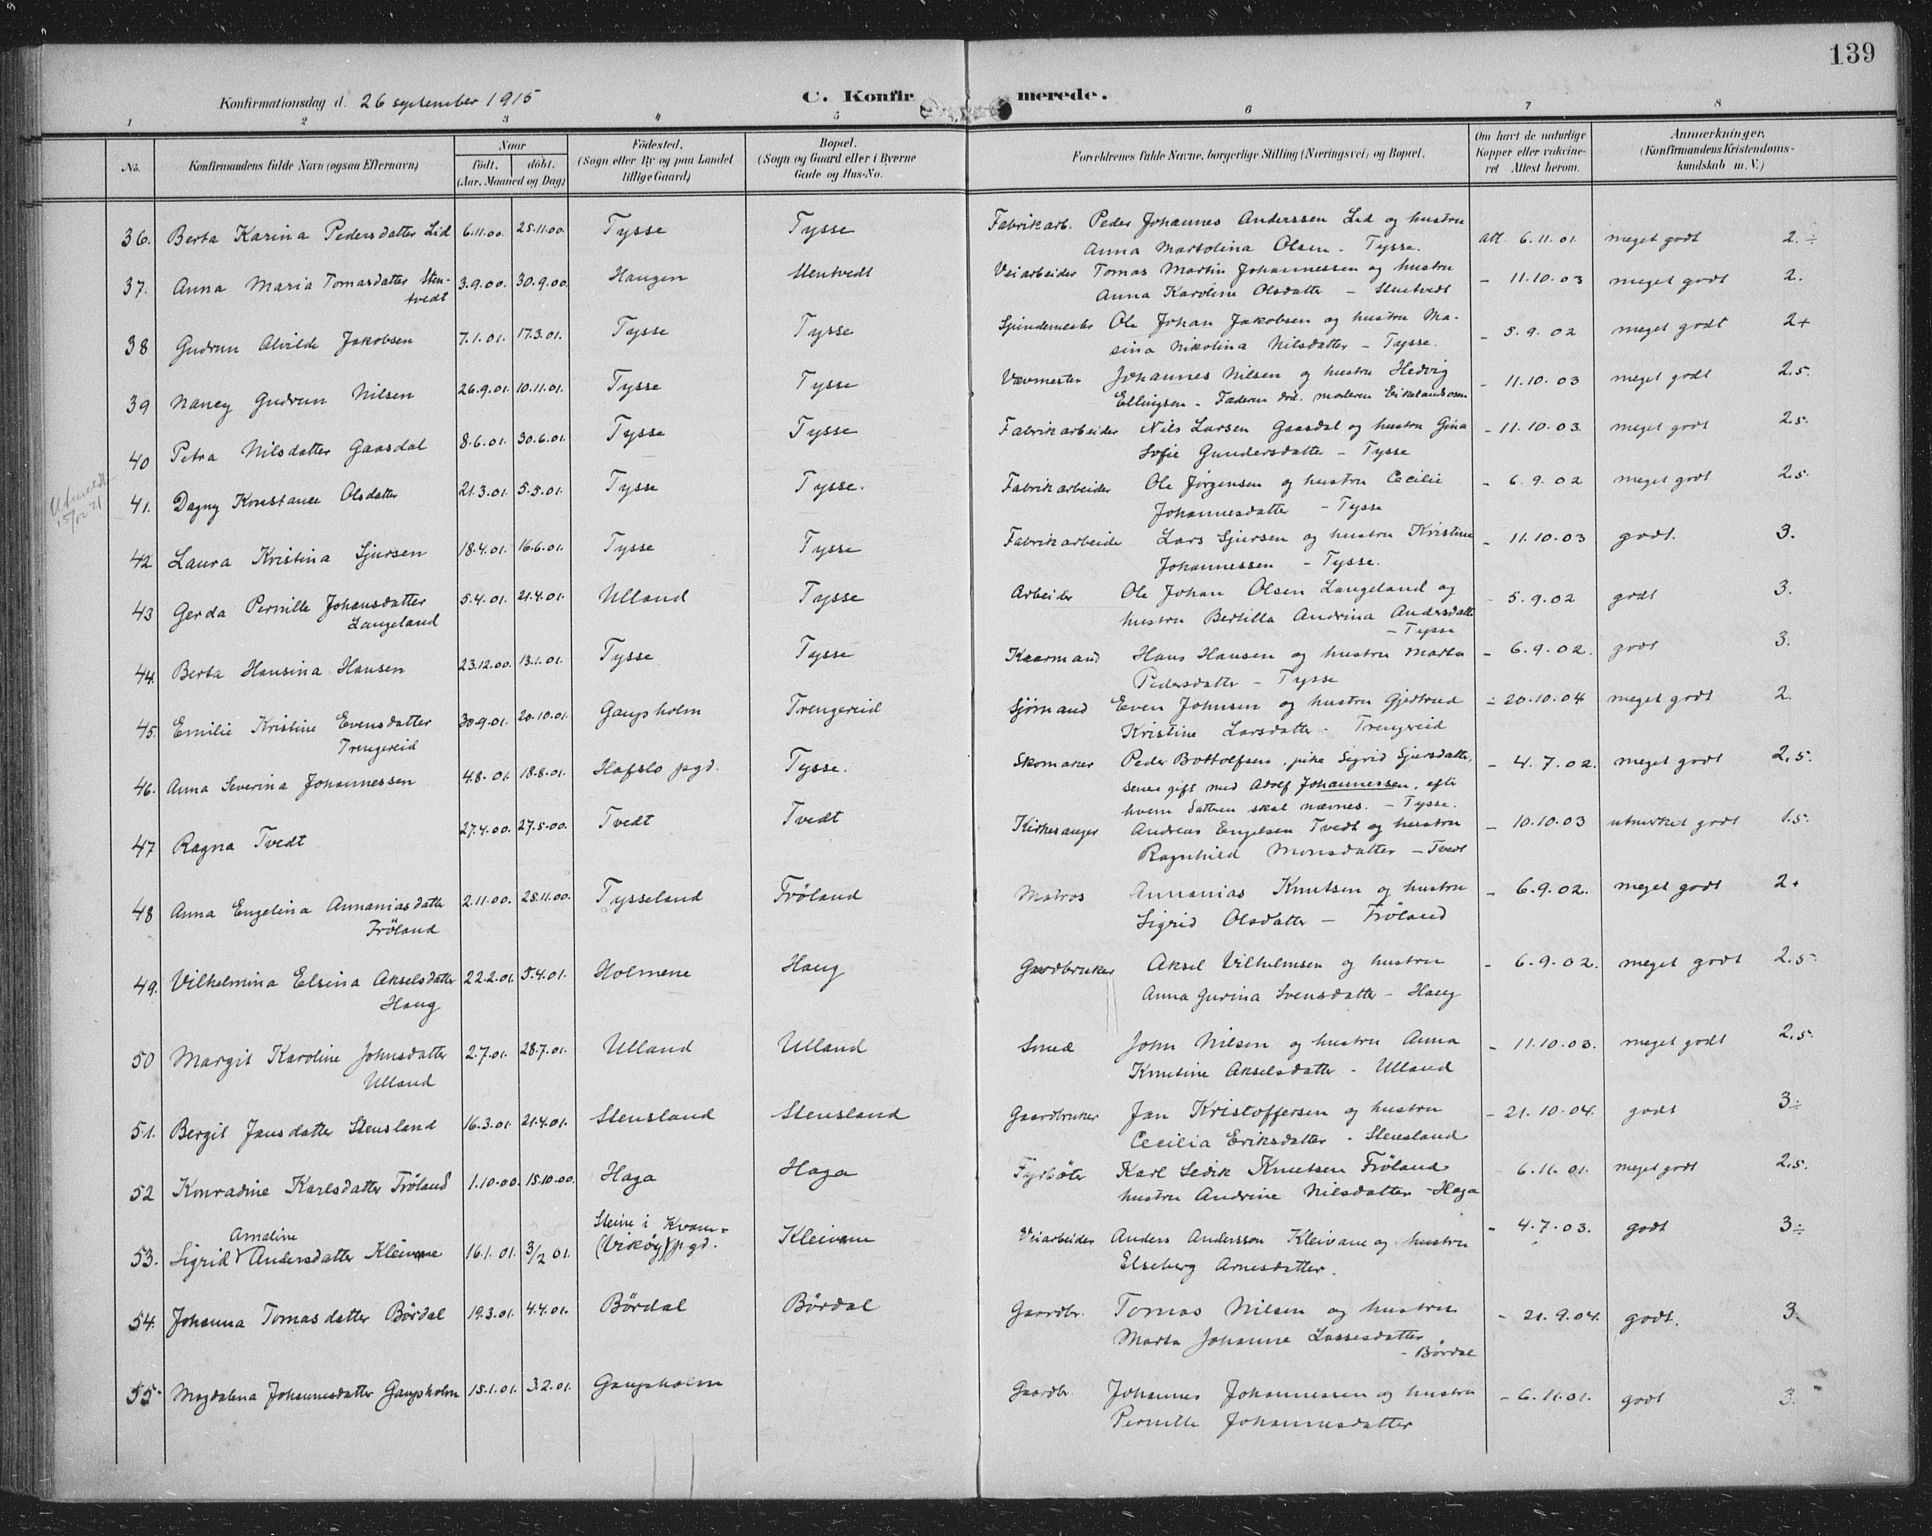 139
Konfirmationsdag d. 26 september 1915 C. Konfirmerede.
1 2 3 4 5 6 7 8
No. Konfirmandens fulde Navn (ogsaa Efternavn) Naar født. døbt. (Aar, Maaned og Dag) Fødested. (Sogn eller By og paa Landet tillige Gaard) Bopæl. (Sogn og Gaard eller i Byerne Gade og Hus-No. Forældrenes fulde Navne, borgerlige Stilling (Næringsvei) og Bopæl. Om havt de naturlige Kopper eller vakcineret Attest herom. Anmærkninger. (Konfirmandens Kristendomskundskab m. V.)
36. Berta Karina Pedersdatter Lid 6.11.00. 25.11.00. Tysse Tysse Fabrikarb. Peder Johannes Anderssen Lid og hustru att. 6.11.01. meget godt 2.÷
Anna Martolina Olsen - Tysse.
37. Anna Maria Tomasdatter Sten- 3.9.00. 30.9.00. Haugen Stentvedt Veiarbeider Tomas Martin Johannessen og hustru - 11.10.03 meget godt 2.
tvedt Anna Karoline Olsdatter - Stentvedt
38 Gudrun Alvilde Jakobsen 7.1.01. 17.3.01. Tysse Tysse Spindemester Ole Johan Jakobsen og hustru Ma- - 5.9.02 meget godt 2+
sina Nikolina Nilsdatter - Tysse.
39 Nancy Gudrun Nilsen 26.9.01. 10.11.01. Tysse Tysse Vævmester Johannes Nilsen og hustru Hedvig - 11.10.03 meget godt 2.5.
Ellingsen - Faderen død. moderen Eikelandsosen
40 Petra Nilsdatter Gaasdal 8.6.01. 30.6.01. Tysse Tysse Fabrikarbeider Nils Larsen Gaasdal og hustru Gina - 11.10.03. meget godt 2.5.
Sofie Gundersdatter - Tysse
Utmeldt
15/12 21
41. Dagny Konstance Olsdatter 21.3.01. 5.5.01. Tysse Tysse. Fabrikarbeider Ole Jørgensen og hustru Cecilie - 6.9.02 meget godt 2.5
Johannesdatter - Tysse
42 Laura Kristina Sjursen 18.4.01. 16.6.01. Tysse Tysse Fabrikarbeider Lars Sjursen og hustru Kristine - 11.10.03 godt. 3.
Johannessen - Tysse.
43 Gerda Pernille Johansdatter 5.4.01. 21.4.01. Ulland Tysse Arbeider Ole Johan Olsen Langeland og - 5.9.02 godt 3.
Langeland hustru Bertilla Andrina Andersdatt
- Tysse
44. Berta Hansina Hansen 23.12.00. 13.1.01. Tysse Tysse Kaarmand Hans Hansen og hustru Marta - 6.9.02. godt 3.
Pedersdatter - Tysse
45. Emilie Kristine Evensdatter 30.9.01. 20.10.01. Gaupsholm Trengereid Sjømand Even Johnsen og hustru Gjertrud - 20.10.04 meget godt 2.
Trengereid Kristine Larsdatter - Trengereid
46. Anna Severina Johannessen 4.8.01. 18.8.01. Hafslo pgd. Tysse. Skomaker Peder Bottolfsen, pike Sigrid Sjursdatter, - 4.7.02. meget godt 2.5.
senere gift med Adolf Johannessen, efter
hvem datteren skal nævnes. - Tysse.
47 Ragna Tvedt 27.4.00. 27.5.00. Tvedt Tvedt Kirkesanger Andreas Engelsen Tvedt og hustru - 10.10.03 utmerket godt 1.5.
Ragnhild Monsdatter - Tvedt
48 Anna Engelina Annaniasdatter 2.11.00. 25.11.00. Tysseland Frøland Matros Annanias Knutsen og hustru - 6.9.02. meget godt 2+
Frøland Sigrid Olsdatter - Frøland
49. Vilhelmina Elsina Akselsdatter 22.2.01. 5.4.01. Holmene Haug Gaardbruker Aksel Vilhelmsen og hustru - 6.9.02. meget godt 2.5.
Haug Anna Gurina Svensdatter - Haug
50 Margit Karoline Johnsdatter 2.7.01. 28.7.01. Ulland Ulland Smed John Nilsen og hustru Anna - 11.10.03. meget godt 2.5.
Ulland Knutine Akselsdatter - Ulland
51. Bergit Jansdatter Stensland 16.3.01. 21.4.01. Stensland Stensland Gaardbruker Jan Kristoffersen og hustru - 21.10.04. godt 3÷
Cecilia Eriksdatter - Stensland
52 Konradine Karlsdatter Frøland 1.10.00. 15.10.00. Haga Haga Fyrbøter Karl Sedik Knutsen Frøland - 6.11.01. meget godt 2.5.
hustru Andrine Nilsdatter - Haga
Amaline Steine i Kvam-
53. Sigrid Andersdatter Kleivane 16.1.01. 3/2 01. (Vikøy) pgd. Kleivane Veiarbeider Anders Andersson Kleivane og hustru - 4.7.03. godt 3÷
Elseberg Arnesdatter.
54. Johanna Tomasdatter Børdal 19.3.01. 4.4.01. Børdal Børdal Gaardbr. Tomas Nilsen og hustru - 21.9.04. godt. 3.
Marta Johanne Lassesdatter
- Børdal
55. Magdalena Johannesdatter Gaupsholm 15.1.01. 3.2.01. Gaupsholm Gaardbr. Johannes Johannessen og hustru - 6.11.01. godt 3.
Pernille Johannesdatter